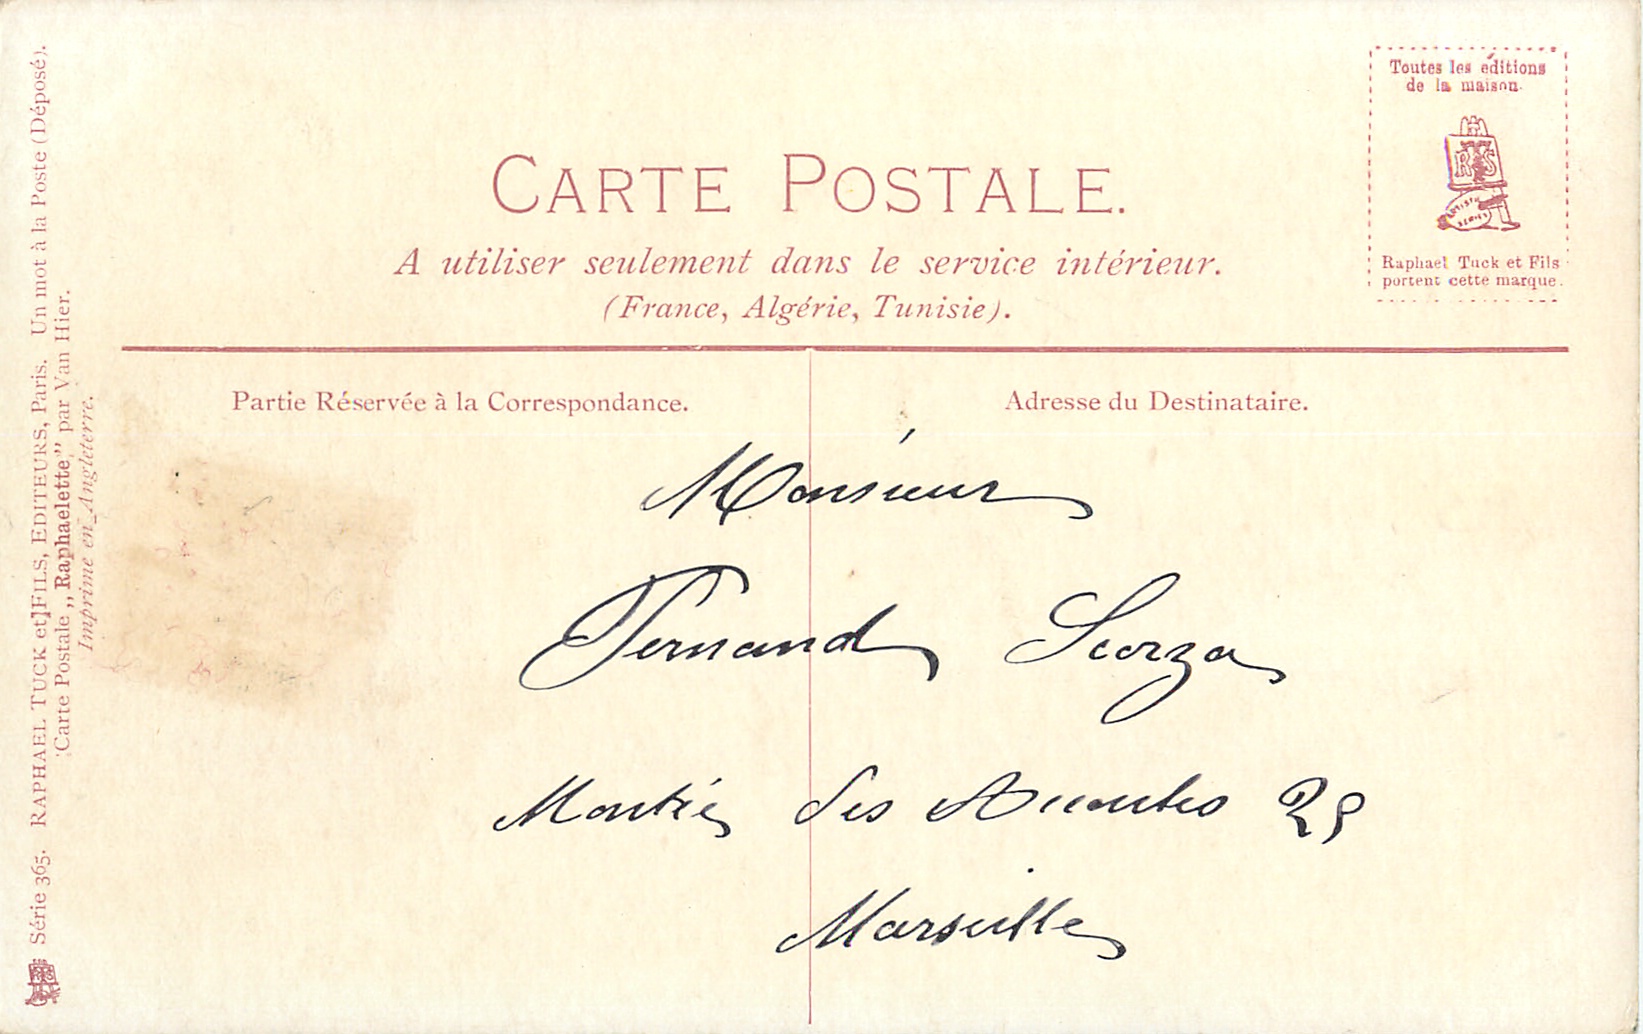 Toutes les éditions
de la maison.
RTS
ARTISTIC
SERIES
Raphael Tuck et Fils
portent cette marque.
CARTE POSTALE.
A utiliser seulement dans le service intérieur.
(France, Algérie, Tunisie).
Partie Réservée à la Correspondance.
Adresse du Destinataire.
Monsieur
Fernand Scorza
Montée des Accoules 25
Marseille
Série 365. RAPHAEL TUCK et FILS, EDITEURS, Paris. Un mot à la Poste (Déposé).
Carte Postale „Raphaelette” par Van Hier.
Imprime en Angleterre.